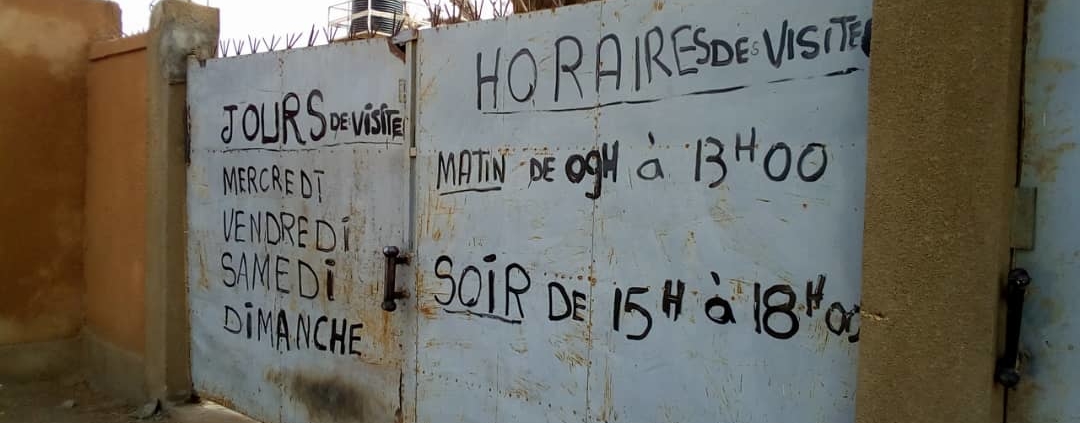 JOURS DE VISITE
MERCREDI
VENDREDI
SAMEDI
DIMANCHE
HORAIRES DES VISITE
MATIN DE 09H à 13H00
SOIR DE 15H à 18H00